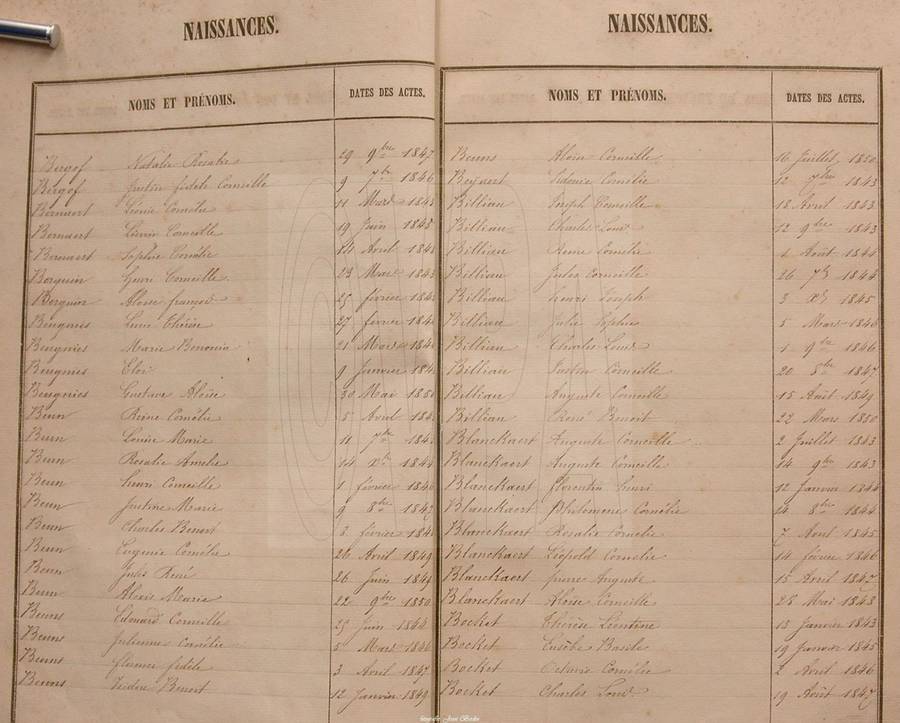 NAISSANCES.
NOMS ET PRÉNOMS. DATES DES ACTES.
Bergof Natalie Rosalie 29 9bre 1847
Bergof Justine fidele Corneille 9 7bre 1846
Bernaert Léonie Cornélie 11 Mars 1843
Bernaert Livin Corneille 19 Juin 1845
Bernaert Sophie Cornélie 14 Avril 184
Berquin Henri Corneille 23 Mai 1843
Berquin Aloïse françois 25 février 184
Beugnies Thérèse 27 février 184
Beugnies Marie 21 Mars 184
Beugnies Eloi 9 Janvier 184
Beugnies Gustave Aloïse 30 Mai 1850
Beun Reine Cornélie 5 Avril 184
Beun Louise Marie 11 7bre 184
Beun Rosalie Amelie 14 Xbre 1844
Beun Henri Corneille 1 février 1846
Beun Justine Marie 9 8bre 184
Beun Charles Benoit 3 février 184
Beun Eugenie Cornélie 26 Avril 1849
Beun Jules René 26 Juin 1849
Beun Alexis Marie 22 9bre 1850
Beuns Edouard Corneille 25 Juin 1844
Beuns Julienne Cornélie 5 Mars 1846
Beuns fidele 3 Avril 1847
Beuns Isidore Benoit 12 Janvier 1849
NAISSANCES.
NOMS ET PRÉNOMS. DATES DES ACTES.
Beuns Aloïse Corneille 16 Juillet 1850
Beyaert Sidonie Cornélie 12 7bre 1843
Billiau Joseph Corneille 18 Avril 1843
Billiau Charles Louis 12 9bre 1843
Billiau Reine Cornélie 1 Août 1844
Billiau Jules Corneille 26 7bre 1844
Billiau Henri Joseph 3 Xbre 1845
Billiau Julie Sophie 5 Mars 1846
Billiau Charles Louis 1 9bre 1846
Billiau Justin Corneille 20 8bre 1847
Billiau Auguste Corneille 15 Août 1849
Billiau René Benoit 22 Mars 1850
Blanckaert Auguste Corneille 2 Juillet 1843
Blanckaert Auguste Corneille 14 9bre 1843
Blanckaert florentin Henri 12 Janvier 1844
Blanckaert Philomene Cornélie 14 8bre 1844
Blanckaert Rosalie Cornelie 7 Avril 1845
Blanckaert Léopold Cornelie 14 février 1846
Blanckaert pierre Auguste 15 Avril 1847
Blanckaert Aloïse Corneille 28 Mai 1848
Bocket Thérèse Léontine 13 Janvier 1843
Bocket Eusèbe Basile 19 Janvier 1845
Bocket Octavie Cornélie 2 Avril 1846
Bocket Charles Louis 19 Août 1847